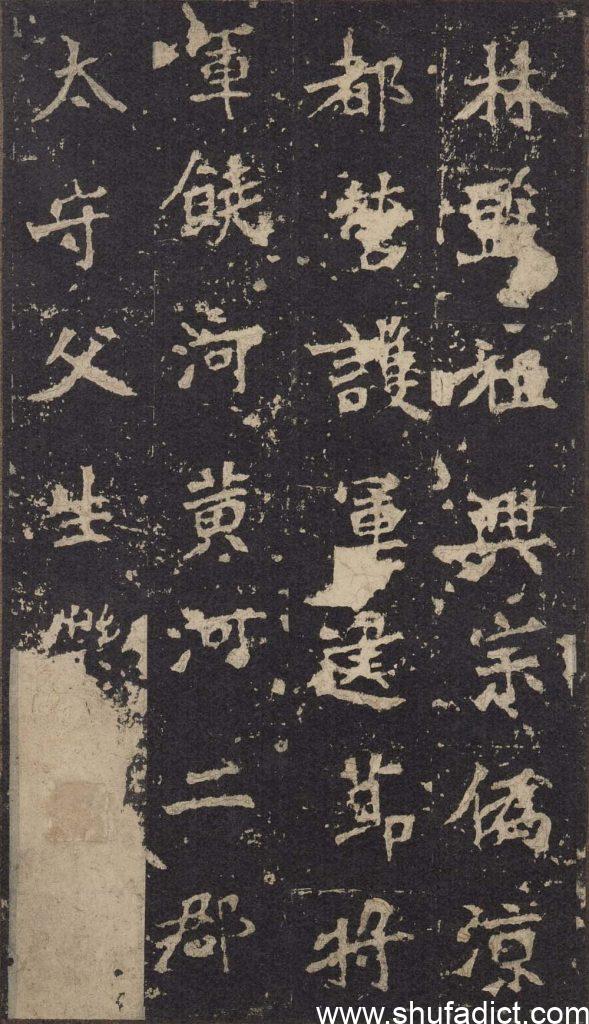 林監祖興宗偽涼
都營護軍建節將
軍饒河黃河二郡
太守父生
www.shufadict.com